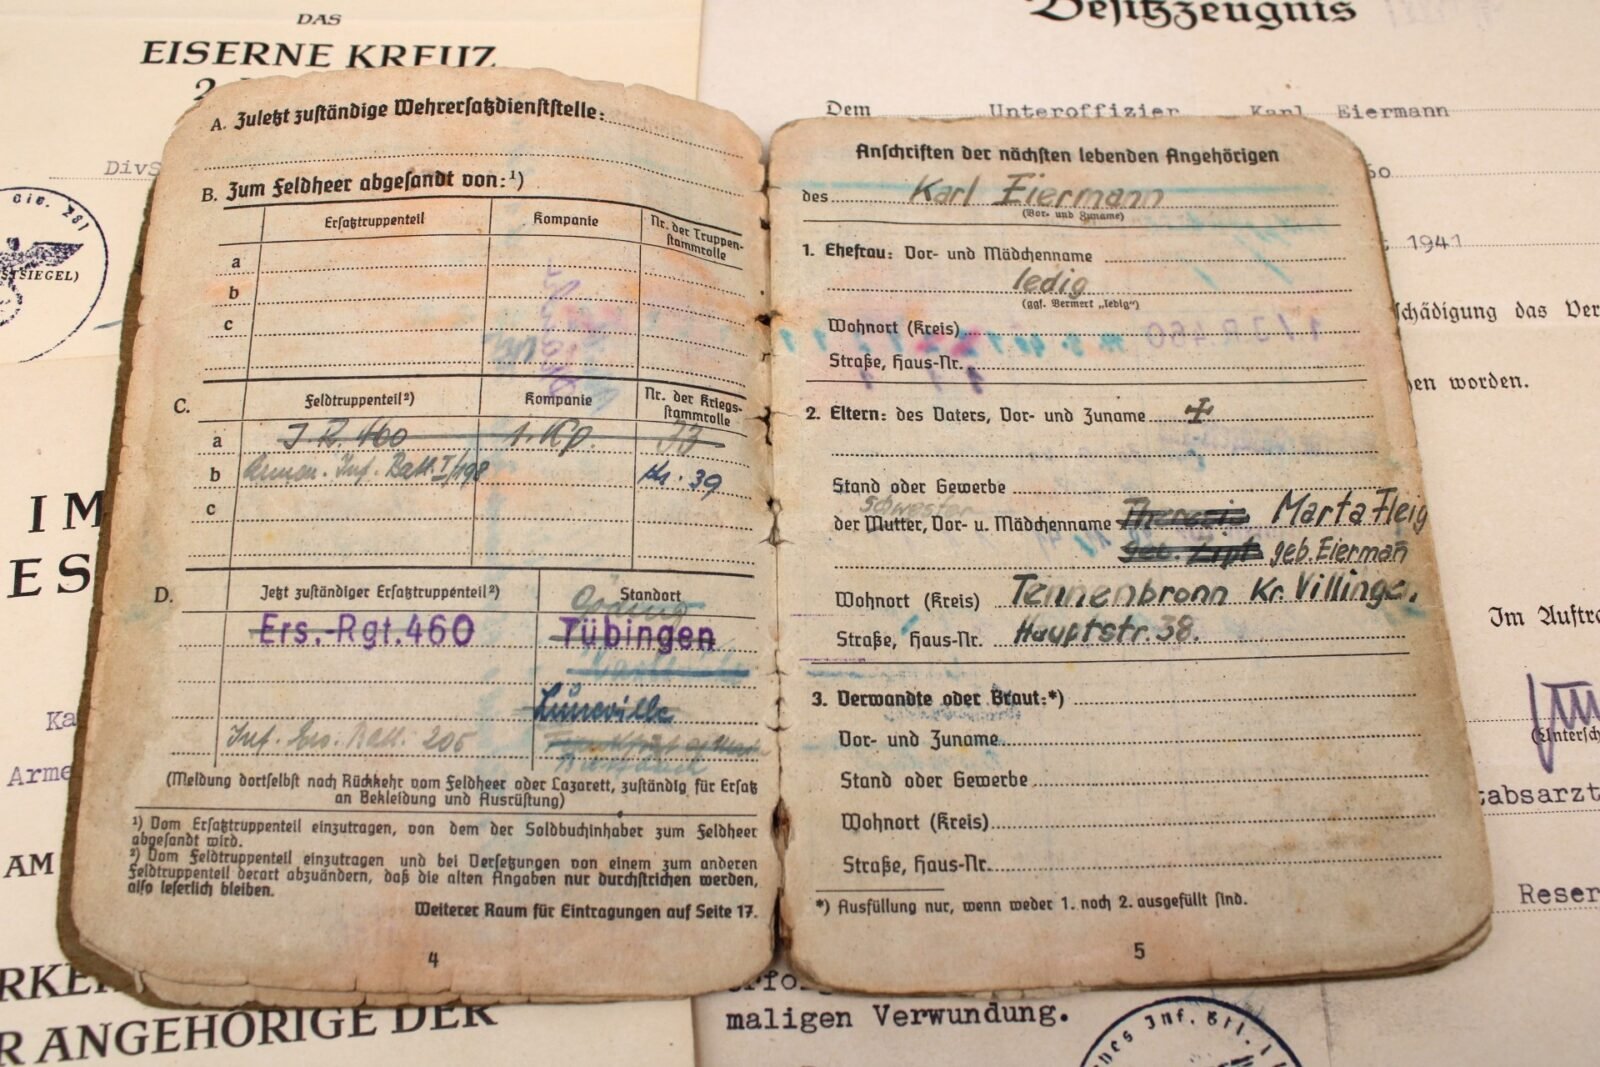 DAS
EISERNE KREUZ
2.
DivS
STSIEGEL)
IM
ES
Ka
Arme
AM
R ANGEHÖRIGE DER
A. Zuletzt zuständige Wehrersatzdienststelle:
B. Zum Feldheer abgesandt von:¹)
Ersatztruppenteil Kompanie Nr. der Truppen-
stammrolle
a
b
c
C. Feldtruppenteil²) Kompanie Nr. der Kriegs-
stammrolle
a J.R. 460 1. Kp. 33
b Inf. Batl. I/198 Nr. 39
c
D. Jetzt zuständiger Ersatztruppenteil²) Standort
Ers.-Rgt. 460 Tübingen
Lunéville
Inf. Ers. Batl. 205
(Meldung dortselbst nach Rückkehr vom Feldheer oder Lazarett, zuständig für Ersatz
an Bekleidung und Ausrüstung)
¹) Vom Ersatztruppenteil einzutragen, von dem der Soldbuchinhaber zum Feldheer
abgesandt wird.
²) Vom Feldtruppenteil einzutragen und bei Versetzungen von einem zum anderen
Feldtruppenteil derart abzuändern, daß die alten Angaben nur durchstrichen werden,
also leserlich bleiben.
Weiterer Raum für Eintragungen auf Seite 17.
4
Besitzzeugnis
Dem Unteroffizier Karl Eiermann
60
1941
schädigung das Ver
en worden.
Im Auftra
tabsarzt
Reser
Anschriften der nächsten lebenden Angehörigen
des Karl Eiermann
(Vor- und Zuname)
1. Ehefrau: Vor- und Mädchenname
ledig
(ggf. Vermerk „ledig")
Wohnort (Kreis)
Straße, Haus-Nr.
2. Eltern: des Vaters, Vor- und Zuname
Stand oder Gewerbe
Schwester
der Mutter, Vor- u. Mädchenname Theresia Marta Fleig
geb. Zipf geb. Eierman
Wohnort (Kreis) Tennenbronn Kr. Villingen
Straße, Haus-Nr. Hauptstr. 38.
3. Verwandte oder Braut:*)
Vor- und Zuname
Stand oder Gewerbe
Wohnort (Kreis)
Straße, Haus-Nr.
*) Ausfüllung nur, wenn weder 1. noch 2. ausgefüllt sind.
5
maligen Verwundung.